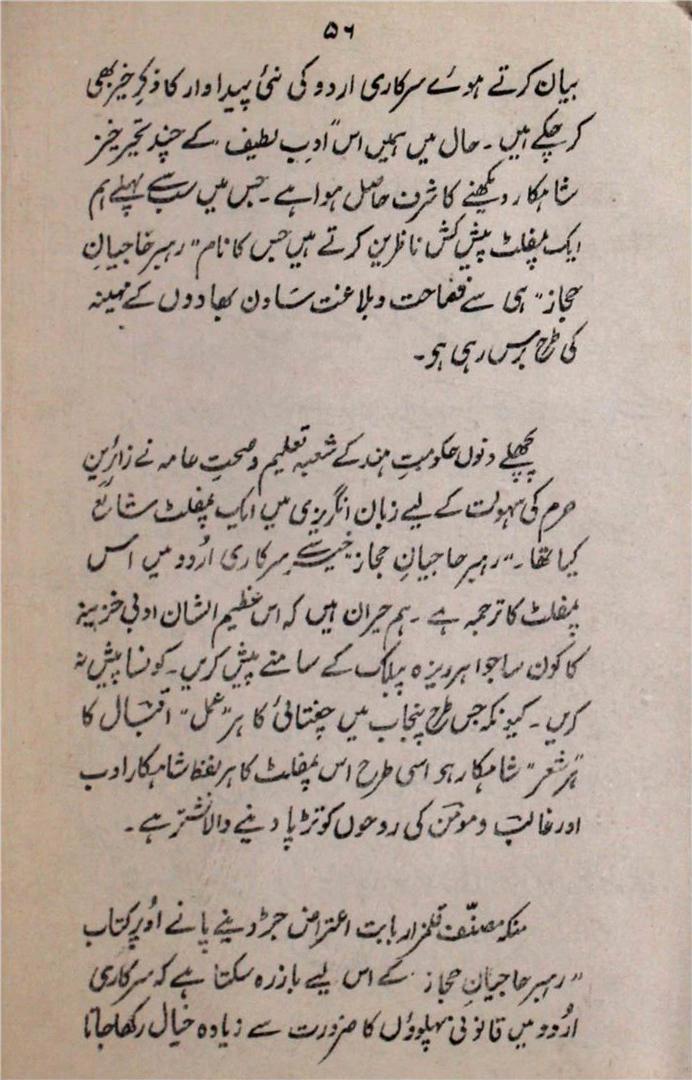 ۵۶
بیان کرتے ہوئے سرکاری اردو کی نئی پیداوار کا ذکرِ خیر بھی
کر چکے ہیں۔ حال میں ہمیں اس "ادبِ لطیف" کے چند تحیر خیز
شاہکار دیکھنے کا شرف حاصل ہوا ہے۔ جس میں سب سے پہلے ہم
ایک پمفلٹ پیش کش ناظرین کرتے ہیں جس کا نام "رہبر حاجیانِ
حجاز" ہی سے فصاحت و بلاغت ساون بھادوں کے مہینہ
کی طرح برس رہی ہو۔
پچھلے دنوں حکومتِ ہند کے شعبہ تعلیم و صحتِ عامہ نے زائرین
حرم کی سہولت کے لیے زبان انگریزی میں ایک پمفلٹ شائع
کیا تھا۔ "رہبر حاجیانِ حجاز خیر سے سرکاری اُردو میں اس
پمفلٹ کا ترجمہ ہے۔ ہم حیران ہیں کہ اس عظیم الشان ادبی خزینہ
کا کون سا جواہر ویزہ پبلک کے سامنے پیش کریں۔ کونسا پیش نہ
کریں۔ کیونکہ جس طرح پنجاب میں چغتائی کا ہر "عمل" اقبال کا
"ہر شعر" شاہکار ہو اسی طرح اس پمفلٹ کا ہر لفظ شاہکار ادب
اور غالب و مومن کی روحوں کو تڑپا دینے والا نشتر ہے۔
منکہ مصنّف قلمزار بابت اعتراض جڑ دینے پانے اوپر کتاب
"رہبر حاجیانِ حجاز" کے اس لیے باز رہ سکتا ہے کہ سرکاری
اُردو میں قانونی پہلوؤں کا ضرورت سے زیادہ خیال رکھا جاتا